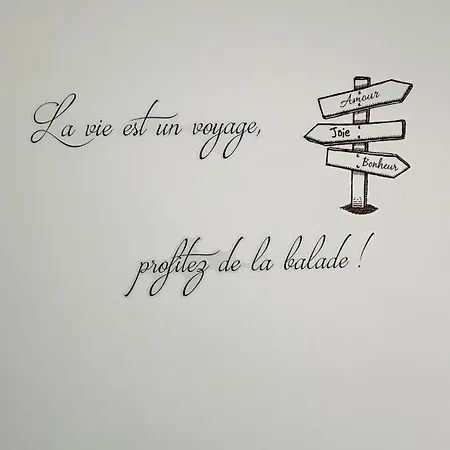 La vie est un voyage,
Amour
Joie
Bonheur
profitez de la balade !